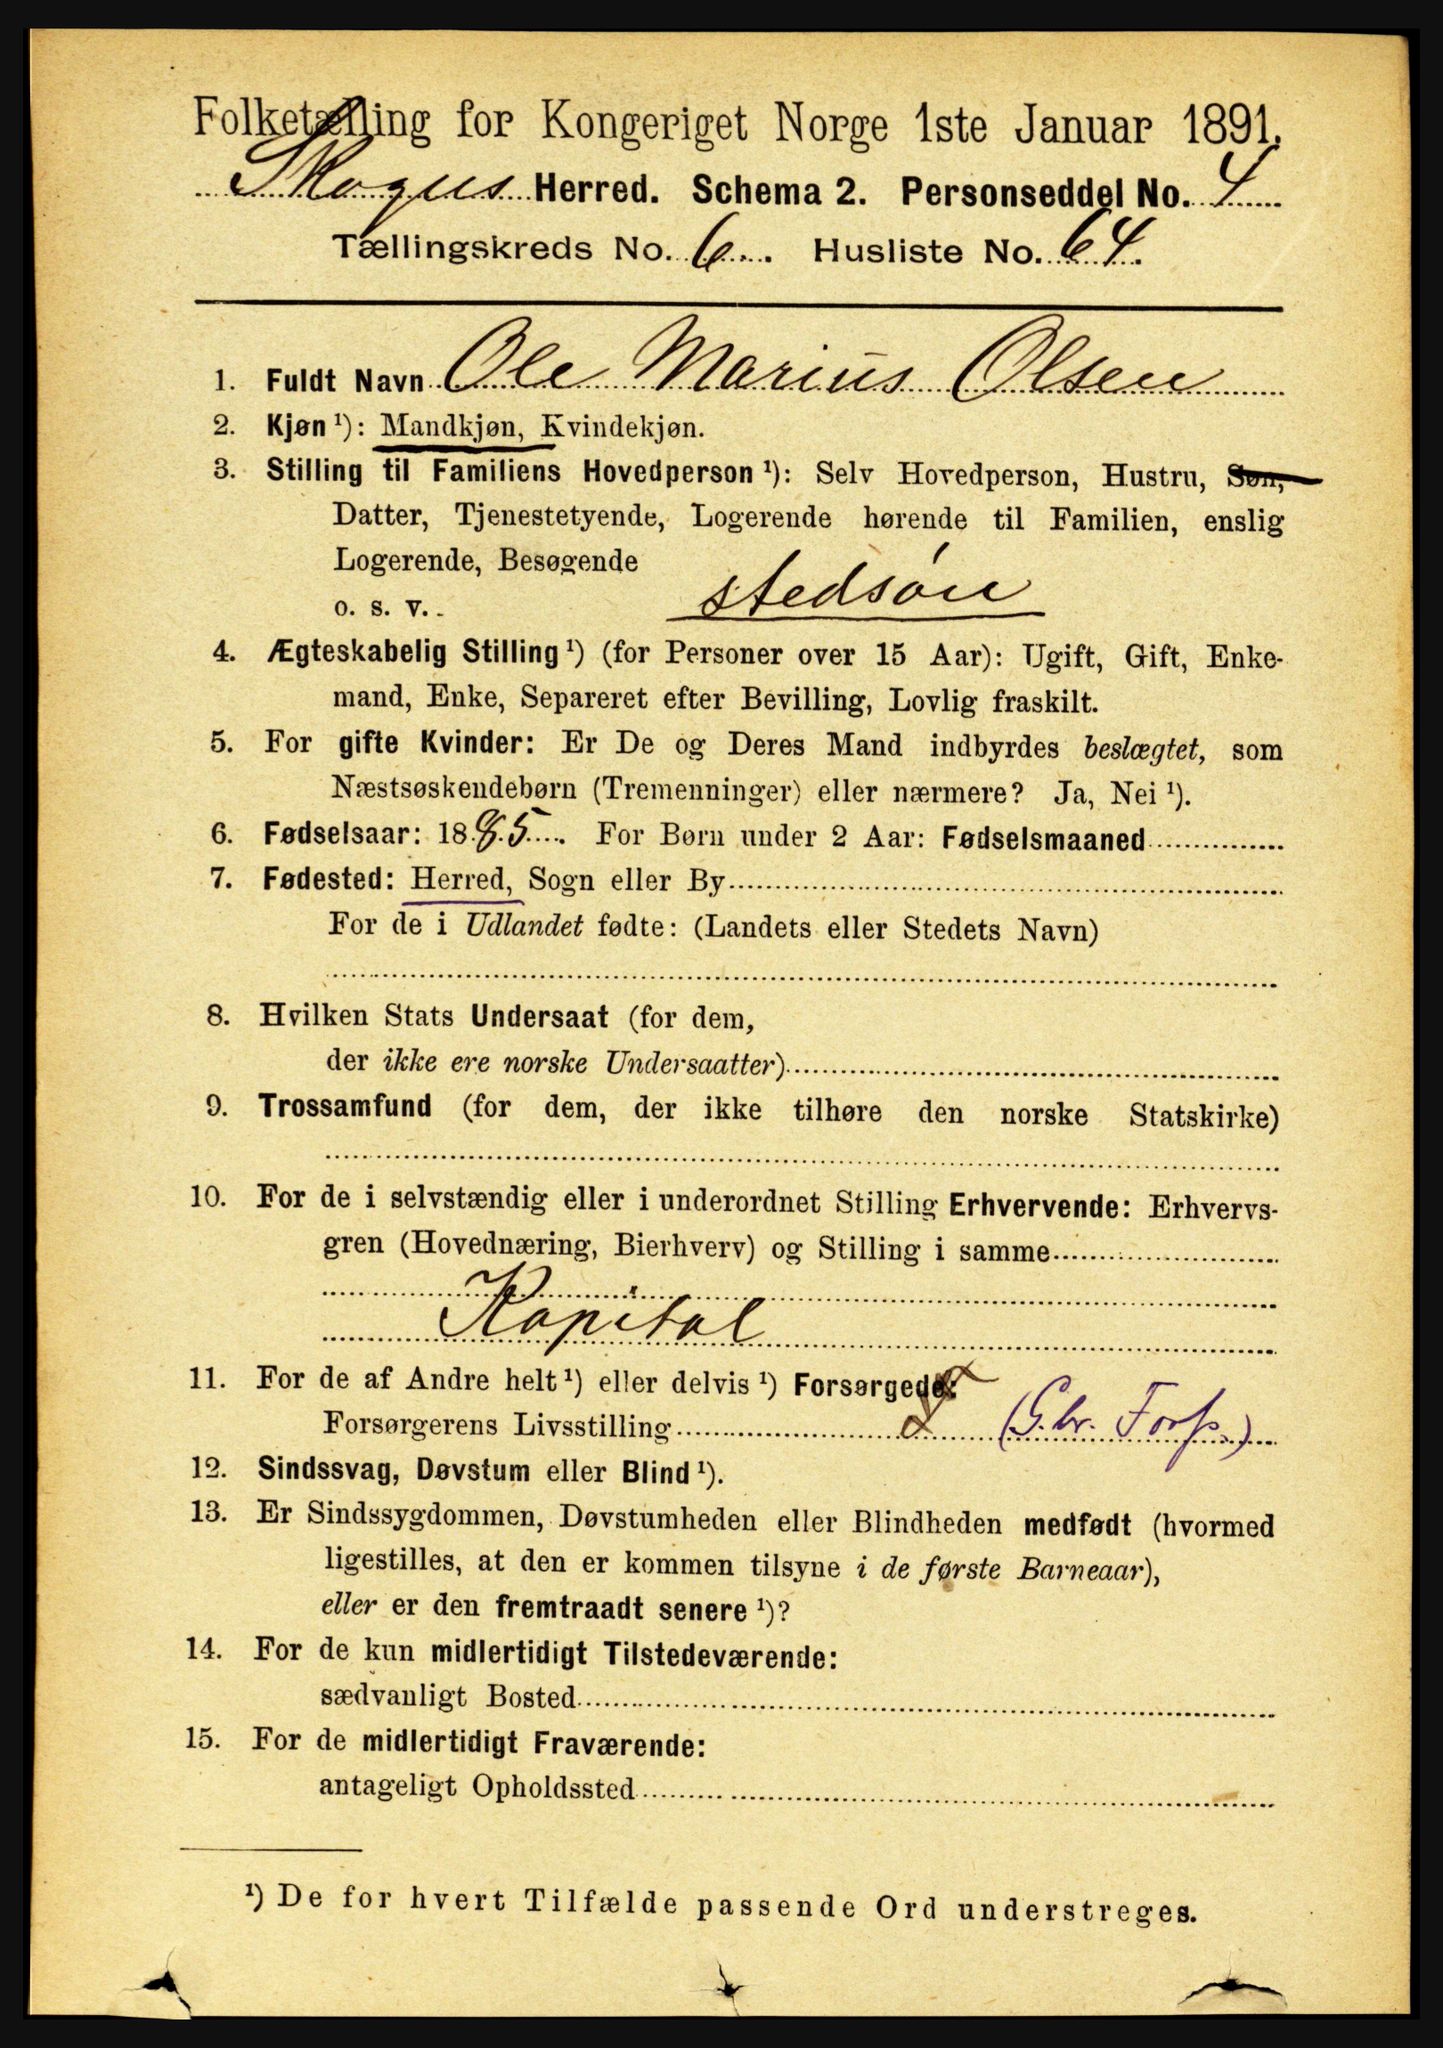 Folketælling for Kongeriget Norge 1ste Januar 1891.
Skogns Herred. Schema 2. Personseddel No. 4
Tællingskreds No. 6. Husliste No. 64.
1. Fuldt Navn Ole Marius Olsen
2. Kjøn ¹): Mandkjøn, Kvindekjøn.
3. Stilling til Familiens Hovedperson ¹): Selv Hovedperson, Hustru, Søn,
Datter, Tjenestetyende, Logerende hørende til Familien, enslig
Logerende, Besøgende
o. s. v. stedsøn
4. Ægteskabelig Stilling ¹) (for Personer over 15 Aar): Ugift, Gift, Enke-
mand, Enke, Separeret efter Bevilling, Lovlig fraskilt.
5. For gifte Kvinder: Er De og Deres Mand indbyrdes beslægtet, som
Næstsøskendebørn (Tremenninger) eller nærmere? Ja, Nei ¹).
6. Fødselsaar: 1885. For Børn under 2 Aar: Fødselsmaaned
7. Fødested: Herred, Sogn eller By
For de i Udlandet fødte: (Landets eller Stedets Navn)
8. Hvilken Stats Undersaat (for dem,
der ikke ere norske Undersaatter)
9. Trossamfund (for dem, der ikke tilhøre den norske Statskirke)
10. For de i selvstændig eller i underordnet Stilling Erhvervende: Erhvervs-
gren (Hovednæring, Bierhverv) og Stilling i samme
Kapital
11. For de af Andre helt ¹) eller delvis ¹) Forsørgede:
Forsørgerens Livsstilling (G.br. Forp.)
12. Sindssvag, Døvstum eller Blind ¹).
13. Er Sindssygdommen, Døvstumheden eller Blindheden medfødt (hvormed
ligestilles, at den er kommen tilsyne i de første Barneaar),
eller er den fremtraadt senere ¹)?
14. For de kun midlertidigt Tilstedeværende:
sædvanligt Bosted
15. For de midlertidigt Fraværende:
antageligt Opholdssted
¹) De for hvert Tilfælde passende Ord understreges.